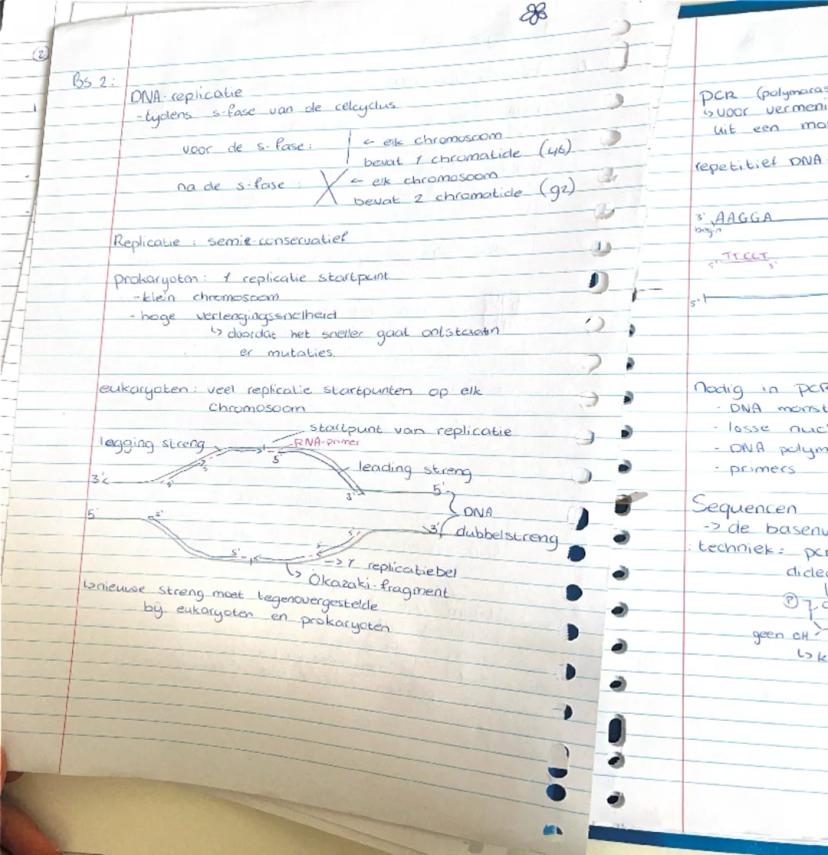 (2)
Bs 2:
DNA-replicatie
- tydens s-fase van de celcyclus
voor de s-fase: | ← elk chromosoom
bevat 1 chromatide (46)
na de s-fase: X ← elk chromosoom
bevat 2 chromatide (92)
Replicatie: semie conservatief
prokaryoten: 1 replicatie startpunt
- klein chromosoom
- hoge verlengingssnelheid
↳ doordat het sneller gaat ontstaan
er mutaties.
eukaryoten: veel replicatie startpunten op elk
chromosoom
startpunt van replicatie
legging streng
RNA-primer
leading streng
3'
5'
DNA
5'
3'
dubbelstreng
→ 1 replicatiebel
↳ Okazaki-fragment
↳ nieuwe streng moet tegenovergestelde
bij eukaryoten en prokaryoten
PCR (polymeras
↳ voor vermeni
uit een mo
repetitief DNA
3' AAGGA
begin
5'
Nodig in PCR
· DNA monst
· losse nuc
· DNA polym
· primers
Sequencen
-> de basenv
techniek: pcr
dider
geen OH
↳ k